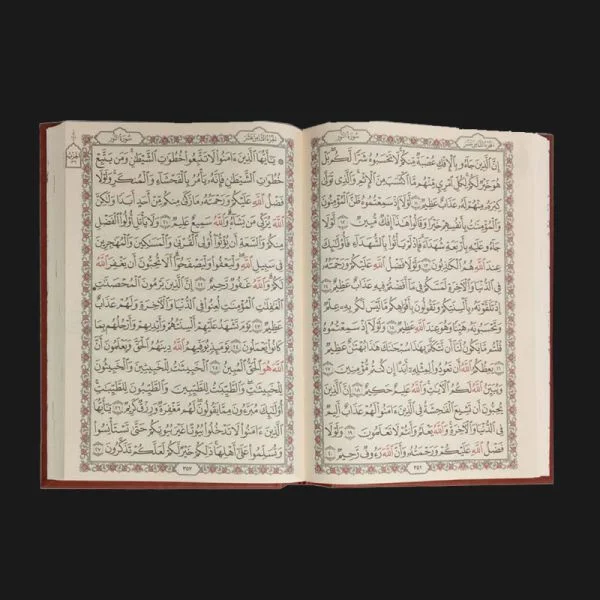 الجزء الثامن عشر
سورة النور
إِنَّ ٱلَّذِينَ جَآءُو بِٱلْإِفْكِ عُصْبَةٌ مِّنكُمْ لَا تَحْسَبُوهُ شَرًّا لَّكُم بَلْ
هُوَ خَيْرٌ لَّكُمْ لِكُلِّ ٱمْرِئٍ مِّنْهُم مَّا ٱكْتَسَبَ مِنَ ٱلْإِثْمِ وَٱلَّذِى تَوَلَّىٰ
كِبْرَهُۥ مِنْهُمْ لَهُۥ عَذَابٌ عَظِيمٌ ١١ لَّوْلَآ إِذْ سَمِعْتُمُوهُ ظَنَّ ٱلْمُؤْمِنُونَ
وَٱلْمُؤْمِنَٰتُ بِأَنفُسِهِمْ خَيْرًا وَقَالُوا۟ هَٰذَآ إِفْكٌ مُّبِينٌ ١٢ لَّوْلَا
جَآءُو عَلَيْهِ بِأَرْبَعَةِ شُهَدَآءَ فَإِذْ لَمْ يَأْتُوا۟ بِٱلشُّهَدَآءِ فَأُو۟لَٰٓئِكَ
عِندَ ٱللَّهِ هُمُ ٱلْكَٰذِبُونَ ١٣ وَلَوْلَا فَضْلُ ٱللَّهِ عَلَيْكُمْ وَرَحْمَتُهُۥ
فِى ٱلدُّنْيَا وَٱلْءَاخِرَةِ لَمَسَّكُمْ فِى مَآ أَفَضْتُمْ فِيهِ عَذَابٌ عَظِيمٌ ١٤
إِذْ تَلَقَّوْنَهُۥ بِأَلْسِنَتِكُمْ وَتَقُولُونَ بِأَفْوَاهِكُم مَّا لَيْسَ لَكُم بِهِۦ عِلْمٌ
وَتَحْسَبُونَهُۥ هَيِّنًا وَهُوَ عِندَ ٱللَّهِ عَظِيمٌ ١٥ وَلَوْلَآ إِذْ سَمِعْتُمُوهُ
قُلْتُم مَّا يَكُونُ لَنَآ أَن نَّتَكَلَّمَ بِهَٰذَا سُبْحَٰنَكَ هَٰذَا بُهْتَٰنٌ عَظِيمٌ
١٦ يَعِظُكُمُ ٱللَّهُ أَن تَعُودُوا۟ لِمِثْلِهِۦٓ أَبَدًا إِن كُنتُم مُّؤْمِنِينَ ١٧
وَيُبَيِّنُ ٱللَّهُ لَكُمُ ٱلْءَايَٰتِ وَٱللَّهُ عَلِيمٌ حَكِيمٌ ١٨ إِنَّ ٱلَّذِينَ
يُحِبُّونَ أَن تَشِيعَ ٱلْفَٰحِشَةُ فِى ٱلَّذِينَ ءَامَنُوا۟ لَهُمْ عَذَابٌ أَلِيمٌ
فِى ٱلدُّنْيَا وَٱلْءَاخِرَةِ وَٱللَّهُ يَعْلَمُ وَأَنتُمْ لَا تَعْلَمُونَ ١٩ وَلَوْلَا
فَضْلُ ٱللَّهِ عَلَيْكُمْ وَرَحْمَتُهُۥ وَأَنَّ ٱللَّهَ رَءُوفٌ رَّحِيمٌ ٢٠
٣٥١
الجزء الثامن عشر
سورة النور
يَٰٓأَيُّهَا ٱلَّذِينَ ءَامَنُوا۟ لَا تَتَّبِعُوا۟ خُطُوَٰتِ ٱلشَّيْطَٰنِ وَمَن يَتَّبِعْ
خُطُوَٰتِ ٱلشَّيْطَٰنِ فَإِنَّهُۥ يَأْمُرُ بِٱلْفَحْشَآءِ وَٱلْمُنكَرِ وَلَوْلَا
فَضْلُ ٱللَّهِ عَلَيْكُمْ وَرَحْمَتُهُۥ مَا زَكَىٰ مِنكُم مِّنْ أَحَدٍ أَبَدًا وَلَٰكِنَّ
ٱللَّهَ يُزَكِّى مَن يَشَآءُ وَٱللَّهُ سَمِيعٌ عَلِيمٌ ٢١ وَلَا يَأْتَلِ أُو۟لُوا۟ ٱلْفَضْلِ
مِنكُمْ وَٱلسَّعَةِ أَن يُؤْتُوٓا۟ أُو۟لِى ٱلْقُرْبَىٰ وَٱلْمَسَٰكِينَ وَٱلْمُهَٰجِرِينَ
فِى سَبِيلِ ٱللَّهِ وَلْيَعْفُوا۟ وَلْيَصْفَحُوٓا۟ أَلَا تُحِبُّونَ أَن يَغْفِرَ ٱللَّهُ
لَكُمْ وَٱللَّهُ غَفُورٌ رَّحِيمٌ ٢٢ إِنَّ ٱلَّذِينَ يَرْمُونَ ٱلْمُحْصَنَٰتِ
ٱلْغَٰفِلَٰتِ ٱلْمُؤْمِنَٰتِ لُعِنُوا۟ فِى ٱلدُّنْيَا وَٱلْءَاخِرَةِ وَلَهُمْ عَذَابٌ
عَظِيمٌ ٢٣ يَوْمَ تَشْهَدُ عَلَيْهِمْ أَلْسِنَتُهُمْ وَأَيْدِيهِمْ وَأَرْجُلُهُم بِمَا
كَانُوا۟ يَعْمَلُونَ ٢٤ يَوْمَئِذٍ يُوَفِّيهِمُ ٱللَّهُ دِينَهُمُ ٱلْحَقَّ وَيَعْلَمُونَ أَنَّ
ٱللَّهَ هُوَ ٱلْحَقُّ ٱلْمُبِينُ ٢٥ ٱلْخَبِيثَٰتُ لِلْخَبِيثِينَ وَٱلْخَبِيثُونَ
لِلْخَبِيثَٰتِ وَٱلطَّيِّبَٰتُ لِلطَّيِّبِينَ وَٱلطَّيِّبُونَ لِلطَّيِّبَٰتِ
أُو۟لَٰٓئِكَ مُبَرَّءُونَ مِمَّا يَقُولُونَ لَهُم مَّغْفِرَةٌ وَرِزْقٌ كَرِيمٌ ٢٦ يَٰٓأَيُّهَا
ٱلَّذِينَ ءَامَنُوا۟ لَا تَدْخُلُوا۟ بُيُوتًا غَيْرَ بُيُوتِكُمْ حَتَّىٰ تَسْتَأْنِسُوا۟
وَتُسَلِّمُوا۟ عَلَىٰٓ أَهْلِهَا ذَٰلِكُمْ خَيْرٌ لَّكُمْ لَعَلَّكُمْ تَذَكَّرُونَ ٢٧
٣٥٢